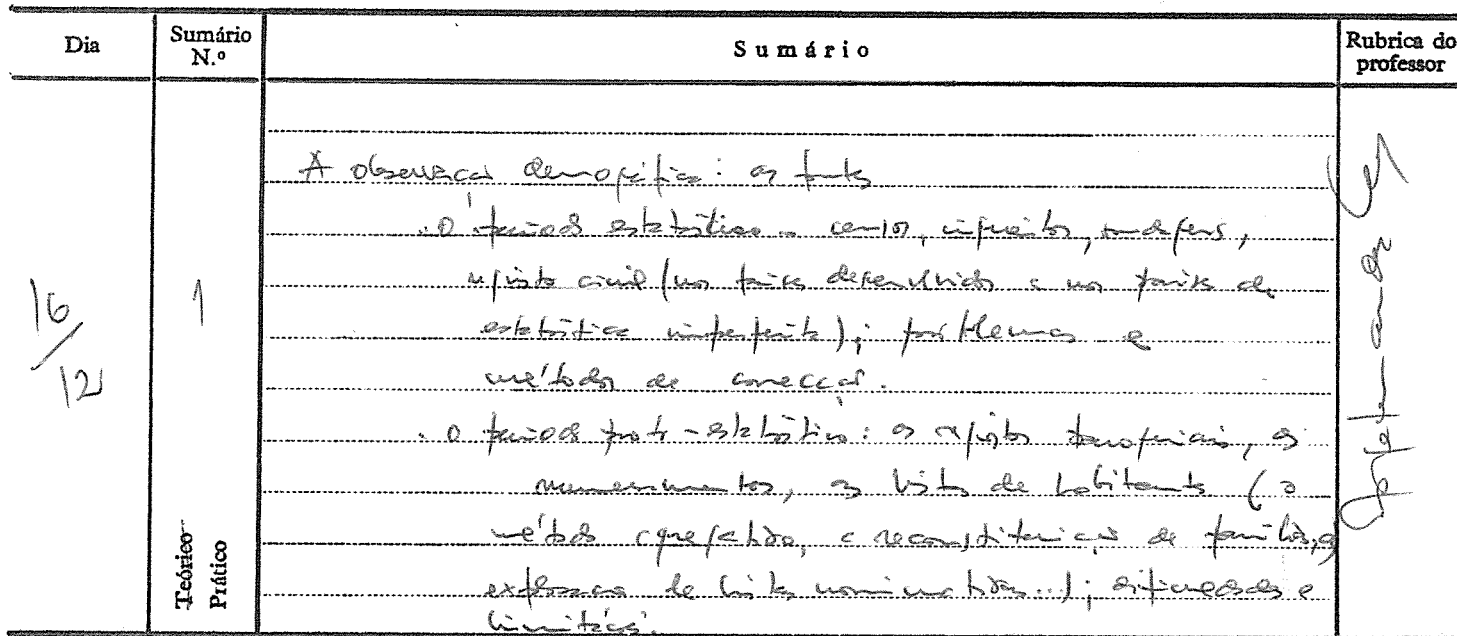 Dia
Sumário N.º
Sumário
Rubrica do professor
16/12
1
Teórico
Prático
A observação demográfica: as fontes
. O período estatístico - censos, inquéritos, sondagens,
registo civil (nos países desenvolvidos e nos países de
estatística imperfeita); problemas e
métodos de correcção.
. O período proto-estatístico: os registos paroquiais, os
numeramentos, as listas de habitantes (o
método agregativo, a reconstituição de famílias, a
exploração de listas nominativas...); dificuldades e
limitações.